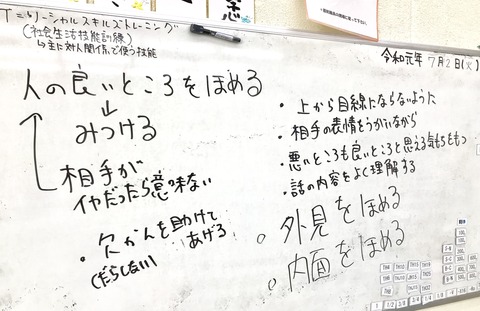 T=ソーシャルスキルズトレーニング
(社会生活技能訓練)
→主に対人関係で使う技能
令和元年 7月2日(火)
人の良いところをほめる
↓
みつける
相手が
イヤだったら意味ない
・欠かんを助けて
あげる
(だらしない)
・上から目線にならないように
・相手の表情をうかがいながら
・悪いところも良いところと思える気もちをもつ
・話の内容をよく理解する
。外見をほめる
。内面をほめる